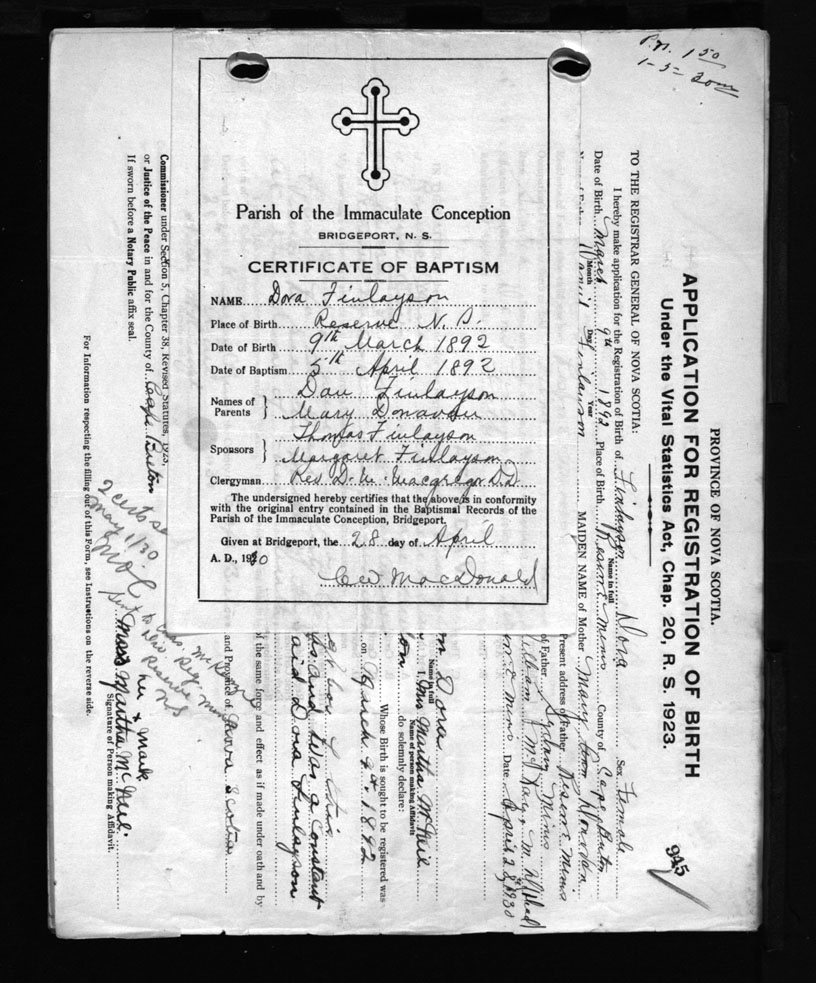 Parish of the Immaculate Conception
BRIDGEPORT, N. S.
CERTIFICATE OF BAPTISM
NAME Dora Finlayson
Place of Birth Reserve N. S.
Date of Birth 9th March 1892
Date of Baptism 5th April 1892
Names of Parents } Dan Finlayson
Mary Donavan
Sponsors } Thomas Finlayson
Margaret Finlayson
Clergyman Rev D. M. Macgregor D.D.
The undersigned hereby certifies that the above is in conformity
with the original entry contained in the Baptismal Records of the
Parish of the Immaculate Conception, Bridgeport.
Given at Bridgeport, the 28 day of April
A. D., 1930
C W MacDonald
1 50
1-5-30
945
PROVINCE OF NOVA SCOTIA.
APPLICATION FOR REGISTRATION OF BIRTH
Under the Vital Statistics Act, Chap. 20, R. S. 1923.
TO THE REGISTRAR GENERAL OF NOVA SCOTIA:
I hereby make application for the Registration of Birth of Finlayson Dora Sex Female
Name in full
Date of Birth March 9th 1892 Place of Birth Reserve Mines County of Cape Breton
Month Day Year
Daniel Finlayson MAIDEN NAME of Mother Mary Ann
Present address of Father Reserve Mines
of Father Sydney Mines
William McKay, M.D.
Mines Date April 28th 1930
m Dora
Name in full
I, Mrs Martha McNeil
Name of person making Affidavit
do solemnly declare:
Whose Birth is sought to be registered was
on March 9th 1892
and was a constant
aid Dora Finlayson
of the same force and effect as if made under oath and by
and Province of Nova Scotia
Commissioner under Section 5, Chapter 38, Revised Statutes, 1923,
or Justice of the Peace in and for the County of Cape Breton
If sworn before a Notary Public affix seal.
her X mark
Mrs Martha McNeil
Signature of Person making Affidavit.
2 certs
May 1/30
sent to Chas. McK
Div Reg.
Reserve Mines
NS
For Information respecting the filling out of this Form, see Instructions on the reverse side.